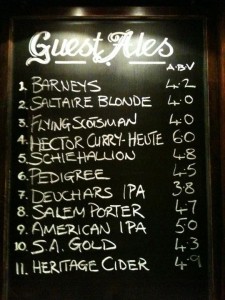 Guest Ales
A.B.V
1. BARNEYS 4.2
2. SALTAIRE BLONDE 4.0
3. FLYING SCOTSMAN 4.0
4. HECTOR CURRY-HEUTE 60
5. SCHIEHALLION 4.8
6. PEDIGREE 4.5
7. DEUCHARS IPA 3.8
8. SALEM PORTER 4.7
9. AMERICAN IPA 50
10. S.A. GOLD 4.3
11. HERITAGE CIDER 4.9